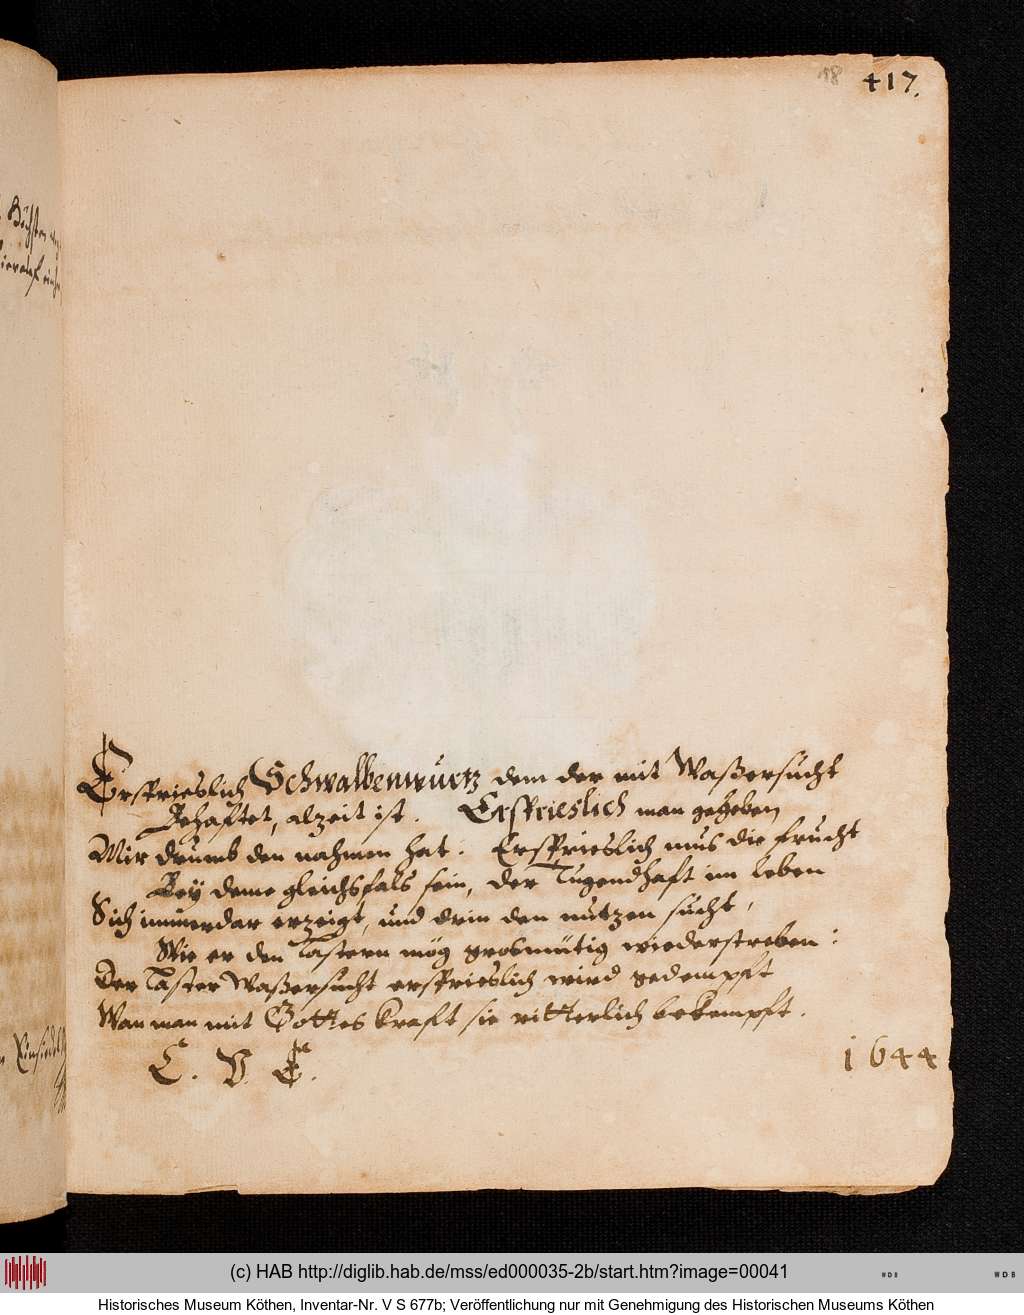 18 417.
Ersprieslich Schwalbenwurtz dem der mit Waßersucht
Behaftet, alzeit ist. Ersprieslich man gegeben
Mir drumb den nahmen hat: Ersprieslich mus die frucht
Bey deme gleichsfals sein, der Tugendhaft im leben
Sich immerdar erzeigt, und drin den nutzen sucht,
Wie er den Lastern mög grosmütig wiederstreben:
Der Laster Waßersucht ersprieslich wird gedempft
Wan man mit Gottes kraft sie ritterlich bekempft.
C. V. E.
1644
Höchsten
(c) HAB http://diglib.hab.de/mss/ed000035-2b/start.htm?image=00041
WDB
WDB
Historisches Museum Köthen, Inventar-Nr. V S 677b; Veröffentlichung nur mit Genehmigung des Historischen Museums Köthen